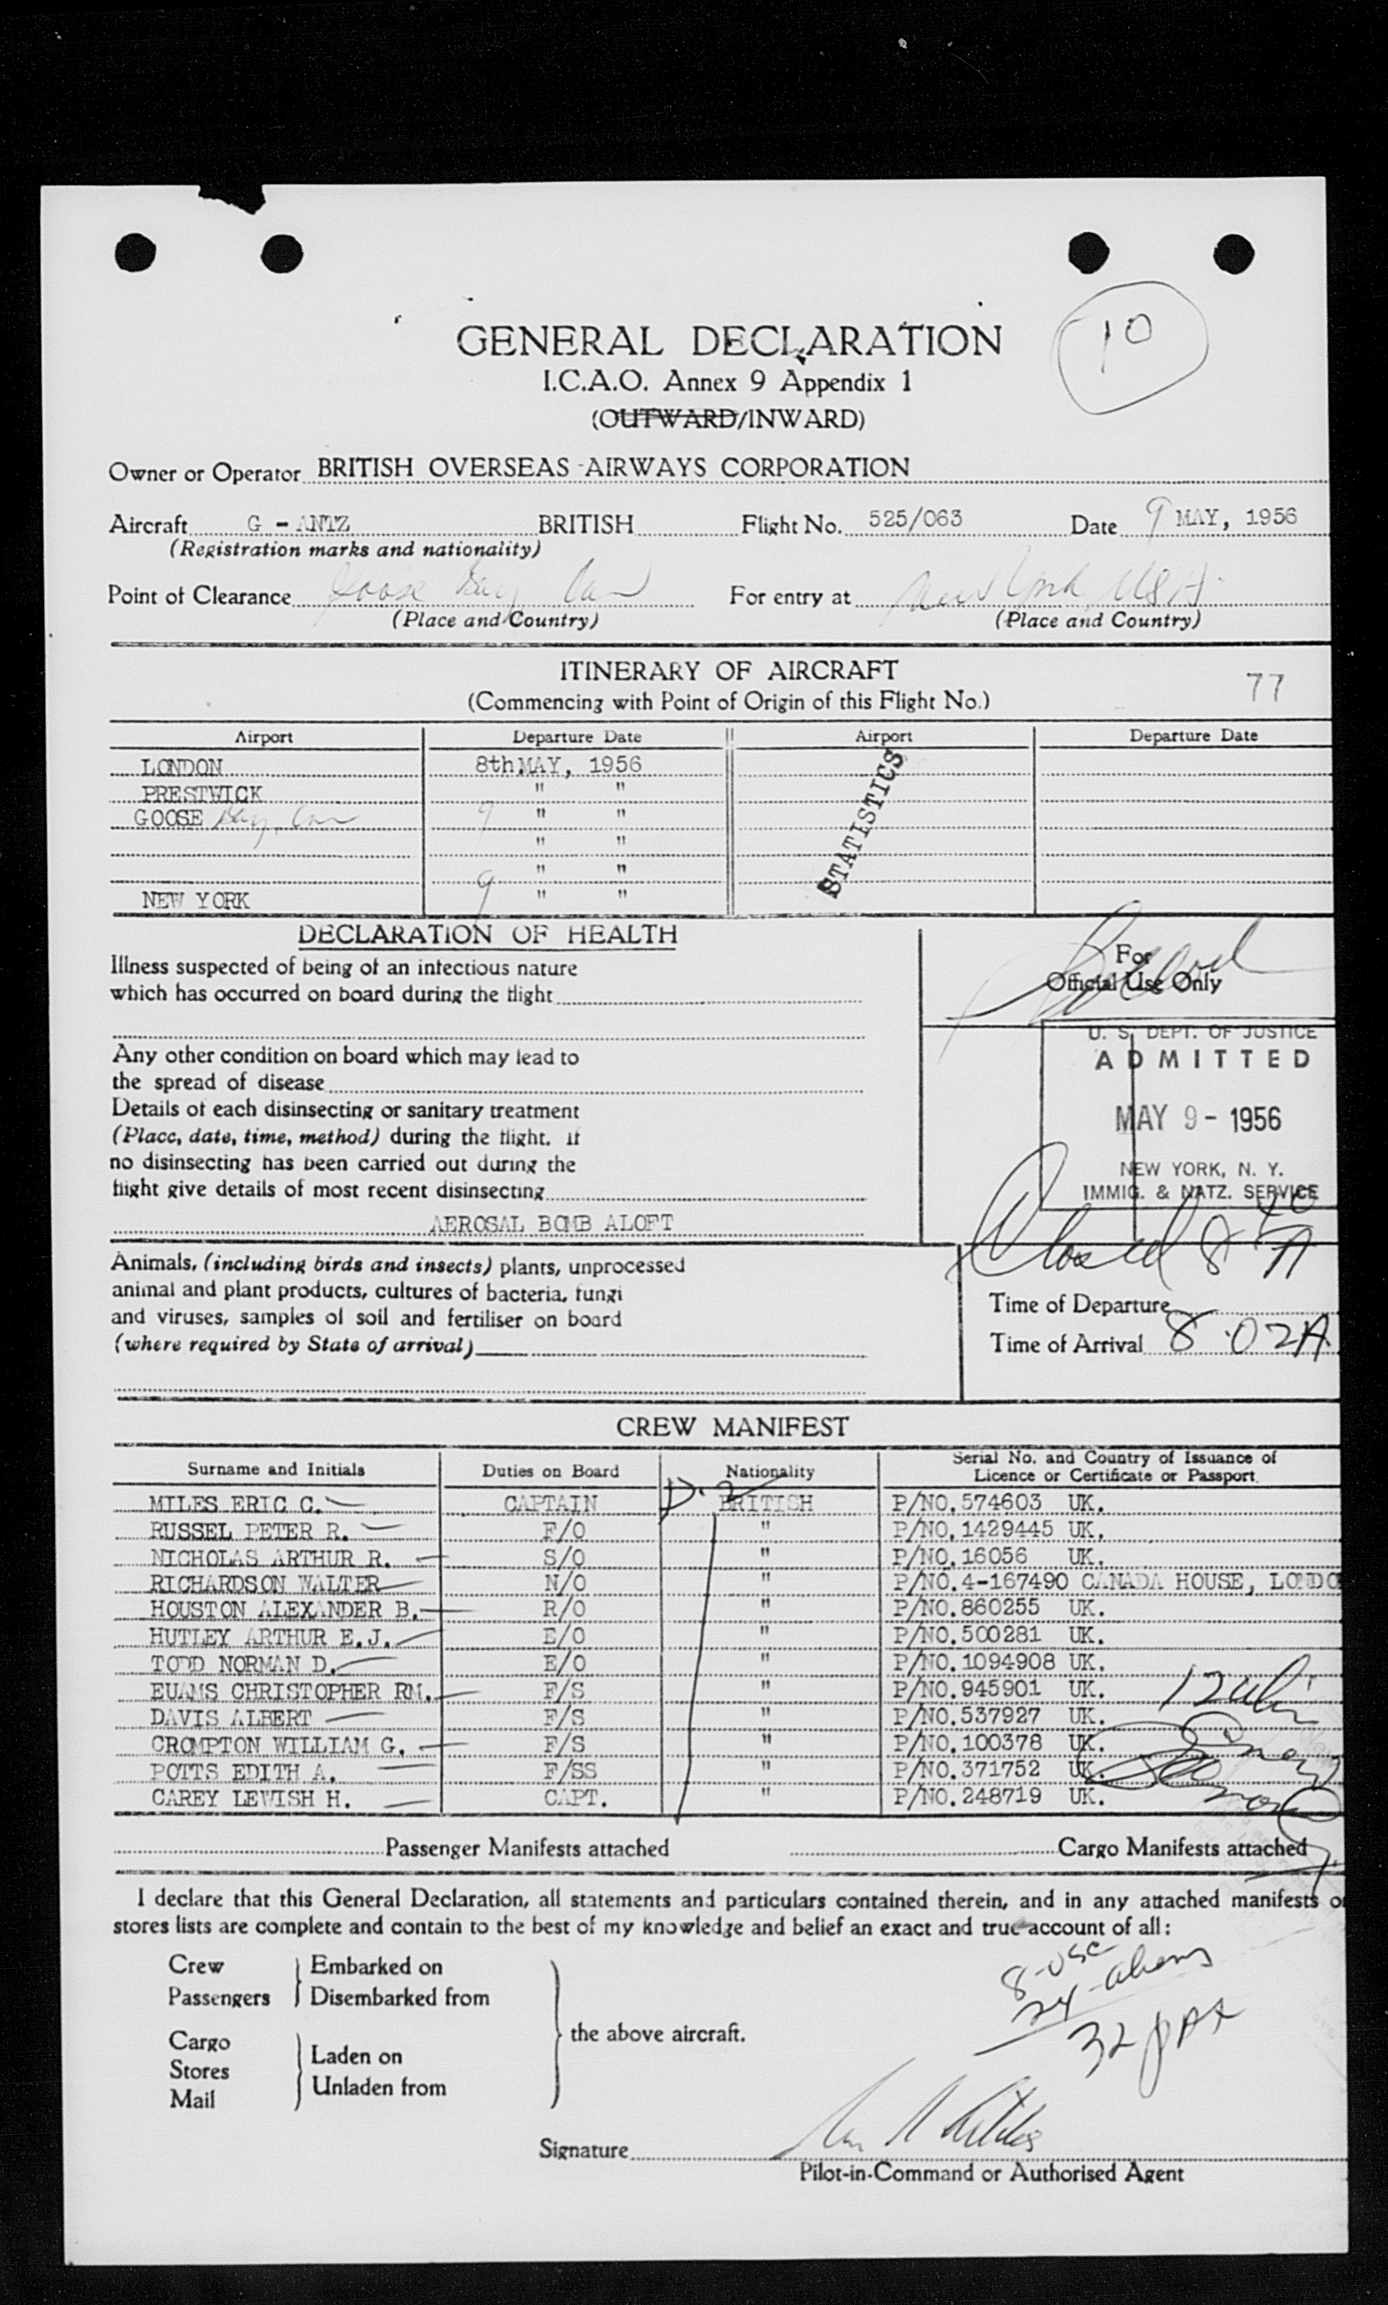 10
GENERAL DECLARATION
I.C.A.O. Annex 9 Appendix 1
(OUTWARD/INWARD)
Owner or Operator BRITISH OVERSEAS AIRWAYS CORPORATION
Aircraft G - ANTZ BRITISH Flight No. 525/063 Date 9 MAY, 1956
(Registration marks and nationality)
Point of Clearance Goose Bay Can For entry at New York, USA
(Place and Country) (Place and Country)
ITINERARY OF AIRCRAFT
(Commencing with Point of Origin of this Flight No.) 77
Airport Departure Date Airport Departure Date
LONDON 8th MAY, 1956
PRESTWICK " "
GOOSE Bay, Can 9 " "
" "
9 " "
NEW YORK " "
STATISTICS
DECLARATION OF HEALTH
Illness suspected of being of an infectious nature
which has occurred on board during the flight
Any other condition on board which may lead to
the spread of disease
Details of each disinsecting or sanitary treatment
(Place, date, time, method) during the flight. If
no disinsecting has been carried out during the
flight give details of most recent disinsecting
AEROSAL BOMB ALOFT
For
Official Use Only
U. S. DEPT. OF JUSTICE
ADMITTED
MAY 9 - 1956
NEW YORK, N. Y.
IMMIG. & NATZ. SERVICE
Closed 8 40 A
Animals, (including birds and insects) plants, unprocessed
animal and plant products, cultures of bacteria, fungi
and viruses, samples of soil and fertiliser on board
(where required by State of arrival)
Time of Departure
Time of Arrival 8.02A
CREW MANIFEST
Surname and Initials Duties on Board Nationality Serial No. and Country of Issuance of Licence or Certificate or Passport.
D.2
MILES ERIC C. CAPTAIN BRITISH P/NO.574603 UK.
RUSSEL PETER R. F/O " P/NO.1429445 UK.
NICHOLAS ARTHUR R. S/O " P/NO.16056 UK.
RICHARDSON WALTER N/O " P/NO.4-167490 CANADA HOUSE, LONDO
HOUSTON ALEXANDER B. R/O " P/NO.860255 UK.
HUTLEY ARTHUR E.J. E/O " P/NO.500281 UK.
TODD NORMAN D. E/O " P/NO.1094908 UK.
EUAMS CHRISTOPHER RM. F/S " P/NO.945901 UK.
DAVIS ALBERT F/S " P/NO.537927 UK.
CROMPTON WILLIAM G. F/S " P/NO.100378 UK.
POTTS EDITH A. F/SS " P/NO.371752 UK.
CAREY LEWISH H. CAPT. " P/NO.248719 UK.
Passenger Manifests attached Cargo Manifests attached
I declare that this General Declaration, all statements and particulars contained therein, and in any attached manifests or
stores lists are complete and contain to the best of my knowledge and belief an exact and true account of all:
Crew Embarked on
Passengers Disembarked from
the above aircraft.
Cargo
Stores Laden on
Mail Unladen from
8-USC
24-aliens
32 PAX
Signature
Pilot-in-Command or Authorised Agent